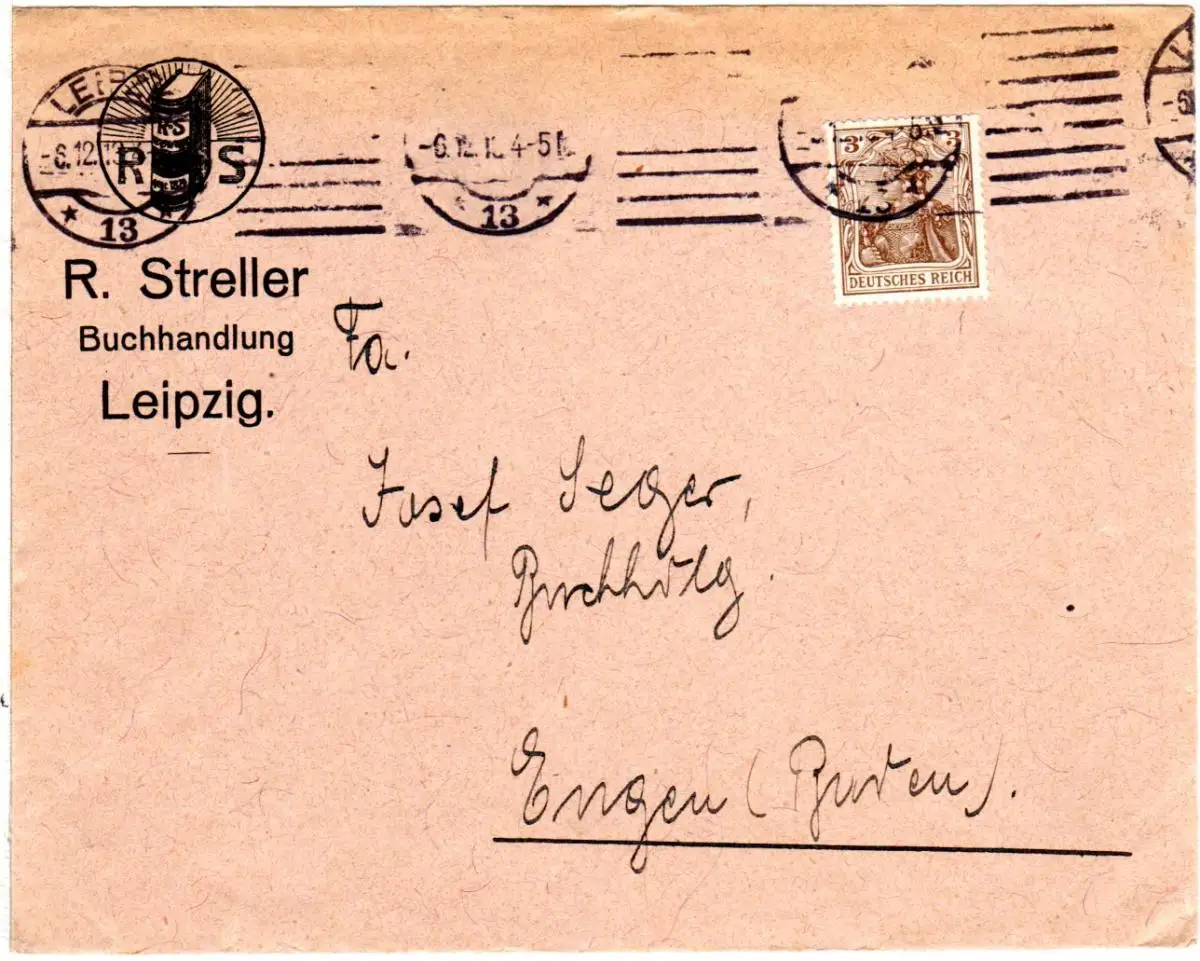 LEIP
-6.12.13
13
R S
R·S
-6.12.1 4-5
13
3 3
13
DEUTSCHES REICH
-6
R. Streller
Buchhandlung
Leipzig.
Fa.
Josef Seger,
Buchhdlg.
Engen (Baden).